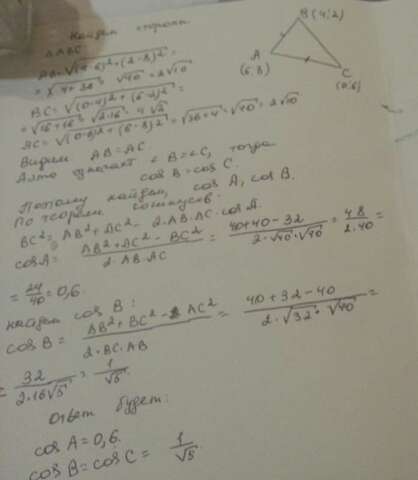 Найдем стороны.
B(4;2)
A
(6;8)
C
(0;6)
△ABC
AB=√(4-6)²+(2-8)²=
=√4+36=√40=2√10
BC=√(0-4)²+(6-2)²=
=√16+16=√2·16=4√2
AC=√(0-6)²+(6-8)²=√36+4=√40=2√10
Видим AB=AC.
означает ∠B=∠C, тогда
cos B=cos C.
Потому найдем, cos A, cos B.
По теореме косинусов:
BC²=AB²+AC²-2·AB·AC·cos A.
cos A=(AB²+AC²-BC²)/(2·AB·AC)=(40+40-32)/(2·√40·√40)=48/(2·40)=
=24/40=0,6.
найдем cos B:
cos B=(AB²+BC²-AC²)/(2·BC·AB)=(40+32-40)/(2·√32·√40)=
=32/(2·16√5)=1/√5.
Ответ будет:
cos A=0,6.
cos B=cos C=1/√5